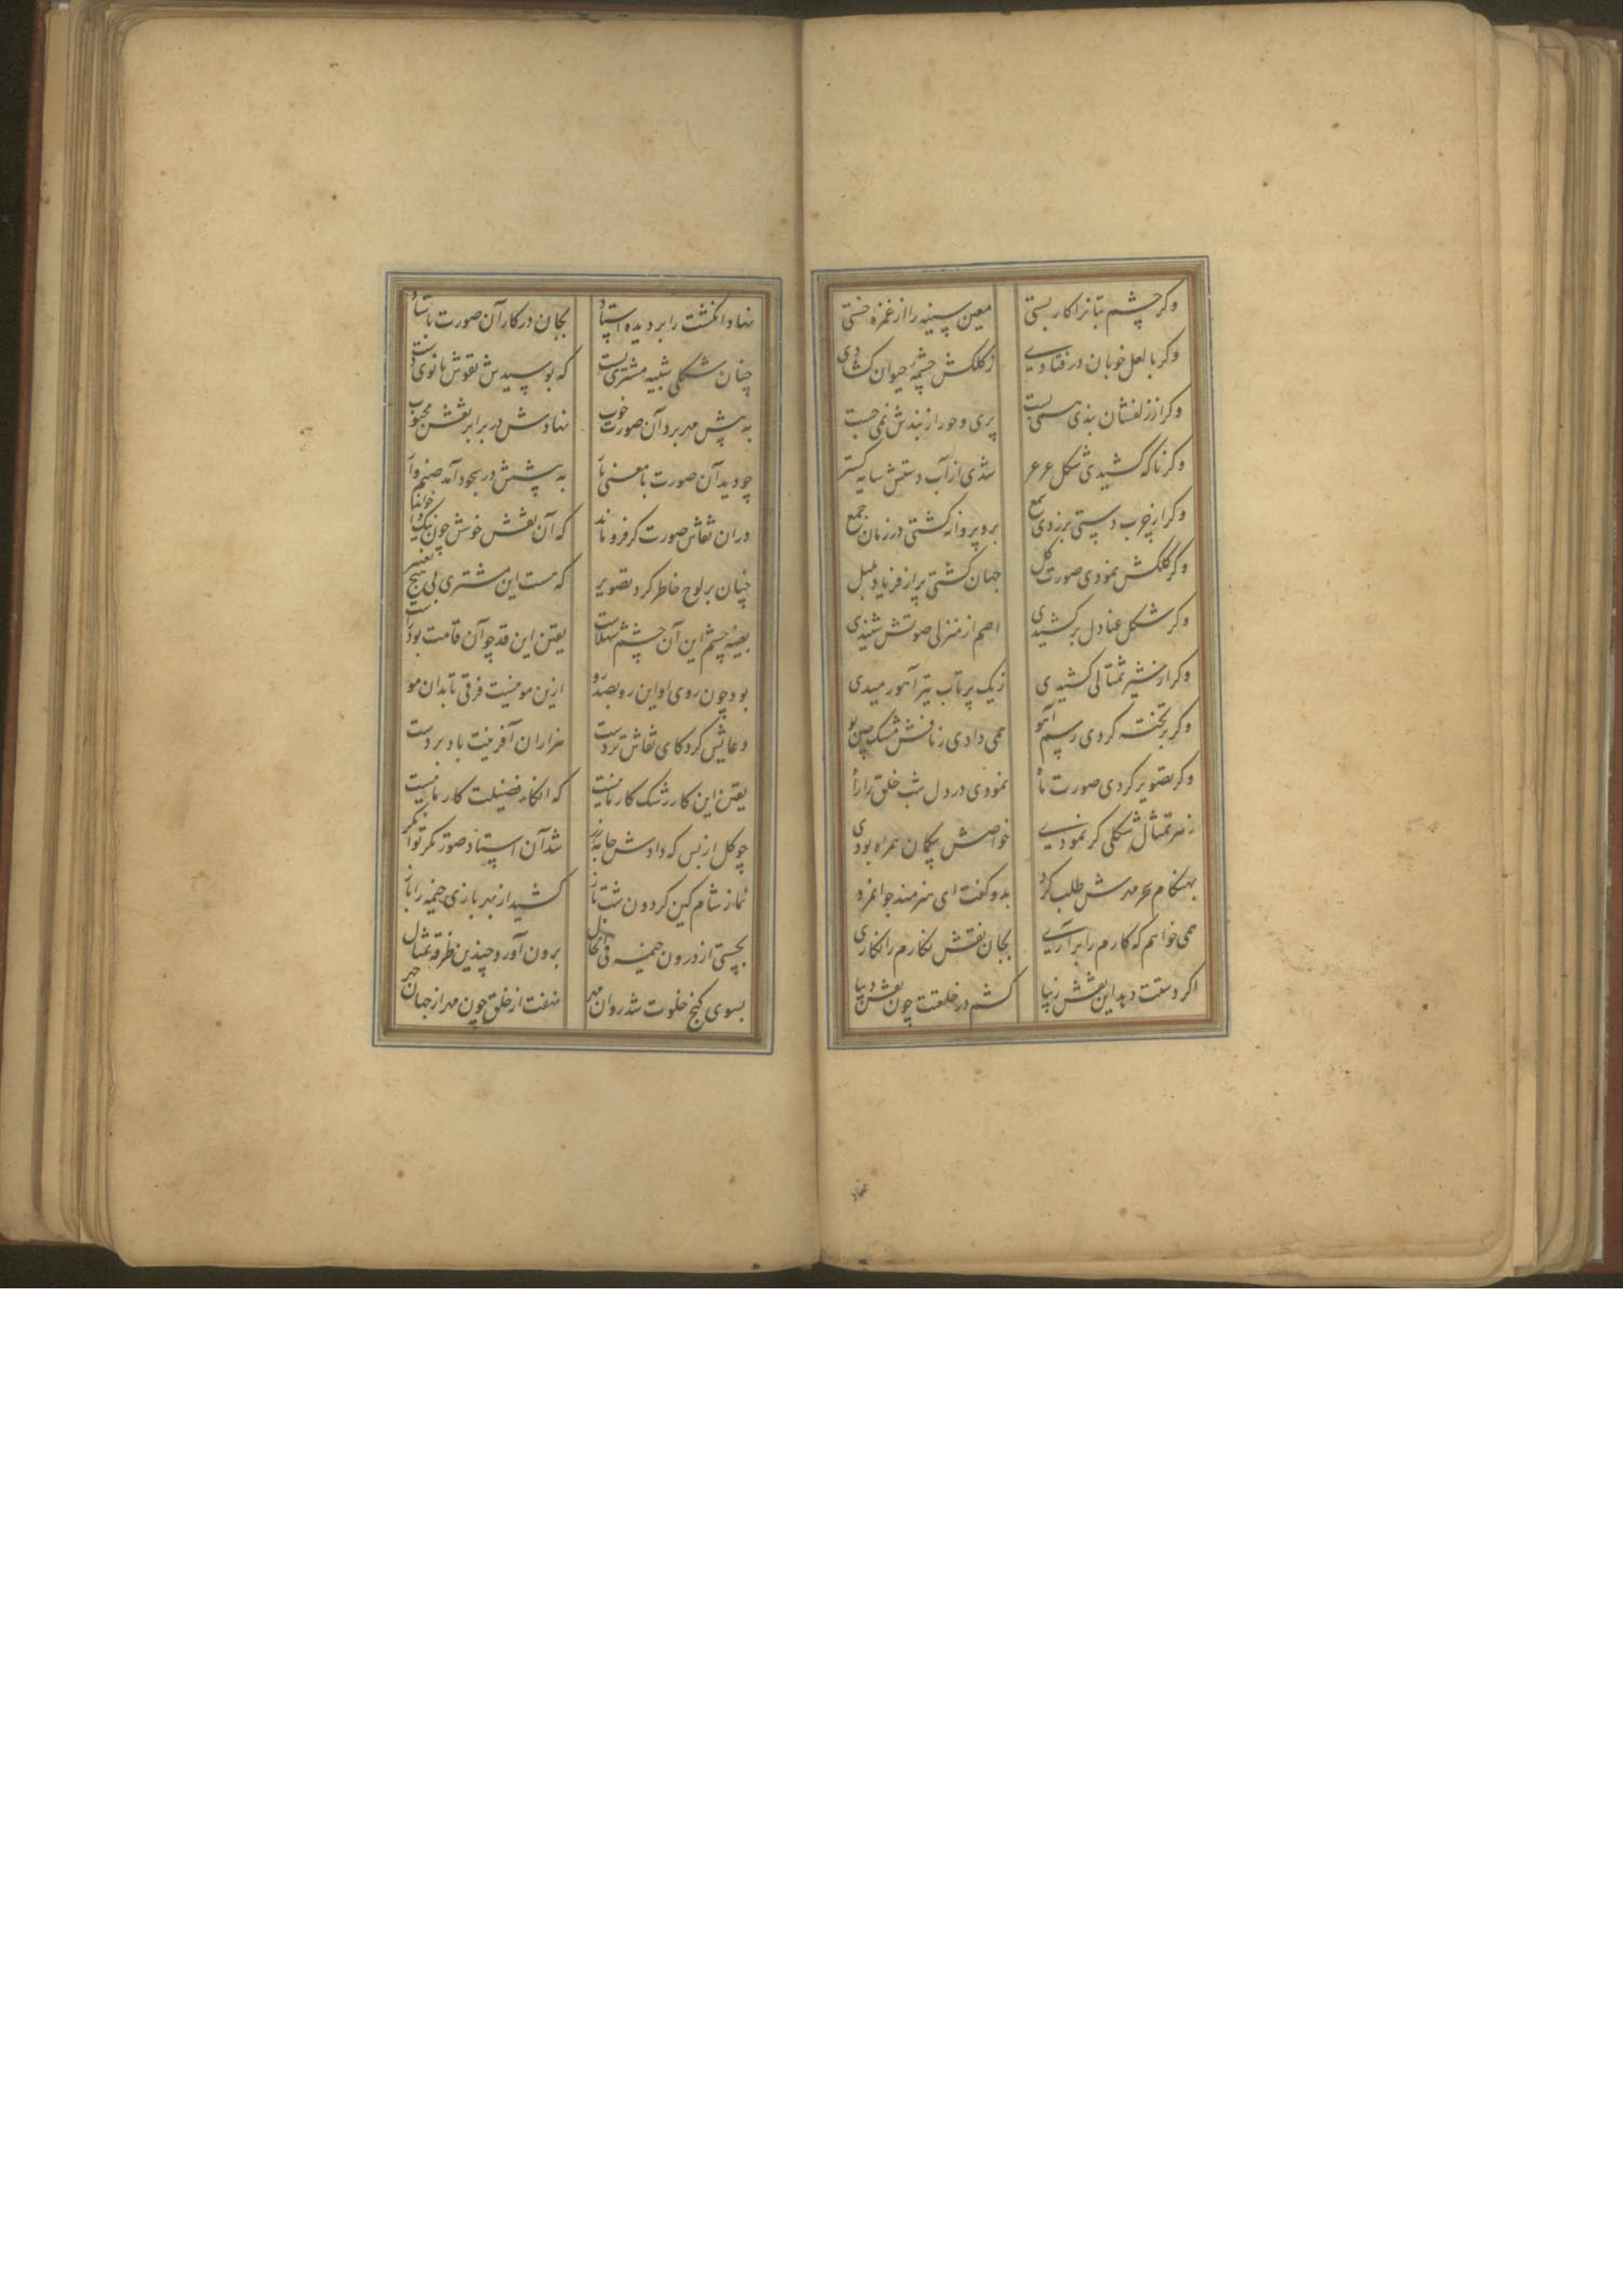 وکر چشم بتانرا کار بستی معین سینه را از غمزه خستی
وکر با لعل خوبان در فتادی ز کلکش چشمهٔ حیوان کشادی
وکر از زلفشان بندی همی بست پری و حور از بندش نمی جست
وکر ناکه کشیدی شکل عرعر شدی از آب دستش سایه کستر
وکر از چرب دستی برزدی شمع برو پروانه کشتی در زمان جمع
وکر کلکش نمودی صورت کل جهان کشتی پر از فریاد بلبل
وکر شکل عنادل برکشیدی اصم از منزلی صوتش شنیدی
وکر از شیر تمثالی کشیدی ز یک پرتاب تیر آهو رمیدی
وکر بر تخته کردی رسم آهو همی دادی ز نافش مشک چین بو
وکر تصویر کردی صورت ماه نمودی در دل شب خلق را راه
ز هر تمثال شکلی کر نمودی خواصش بیکمان همراه بودی
بهنکام سحر مهرش طلب کرد بدو کفت ای هنرمند جوانمرد
همی خواهم که کارم را برآری بجان نقش نکارم را نکاری
اکر دستت دهد این نقش زیبا کشم در خلعتت چون نقش دیبا
نهاد انکشت را بر دیده استاد بجان در کار آن صورت باستاد
چنان شکلی شبیه مشتری بست که بوسیدش نقوش مانوی دست
به پیش مهر برد آن صورت خوب نهادش در برابر نقش محبوب
چو دید آن صورت با معنی به پیشش در سجود آمد صنم وار
در آن نقاش صورت کر فرو ماند که آن نقش خوش چون نیک
چنان بر لوح خاطر کرد تصویر که هست این مشتری بی هیچ تغییر
بعینه چشم این آن چشم شهلاست یقین این قد چو آن قامت بود راست
بود چون روی او این رو بصد رو ازین مو نیست فرقی تا بدان مو
دعایش کرد کای نقاش تردست هزاران آفرینت باد بر دست
یقین این کار رشک کار مانیست که انکار فضیلت کار ما نیست
چو کل از بس که دادش جامه و زر شد آن استاد صورتکر توانکر
نماز شام کین کردون شب باز کشید از بهر بازی خیمه را باز
بچستی از درون خیمه فی الحال برون آورد چندین طرفه تمثال
بسوی کنج خلوت شد روان مهر نهفت از خلق چون مهر از جهان چهر
نهاد